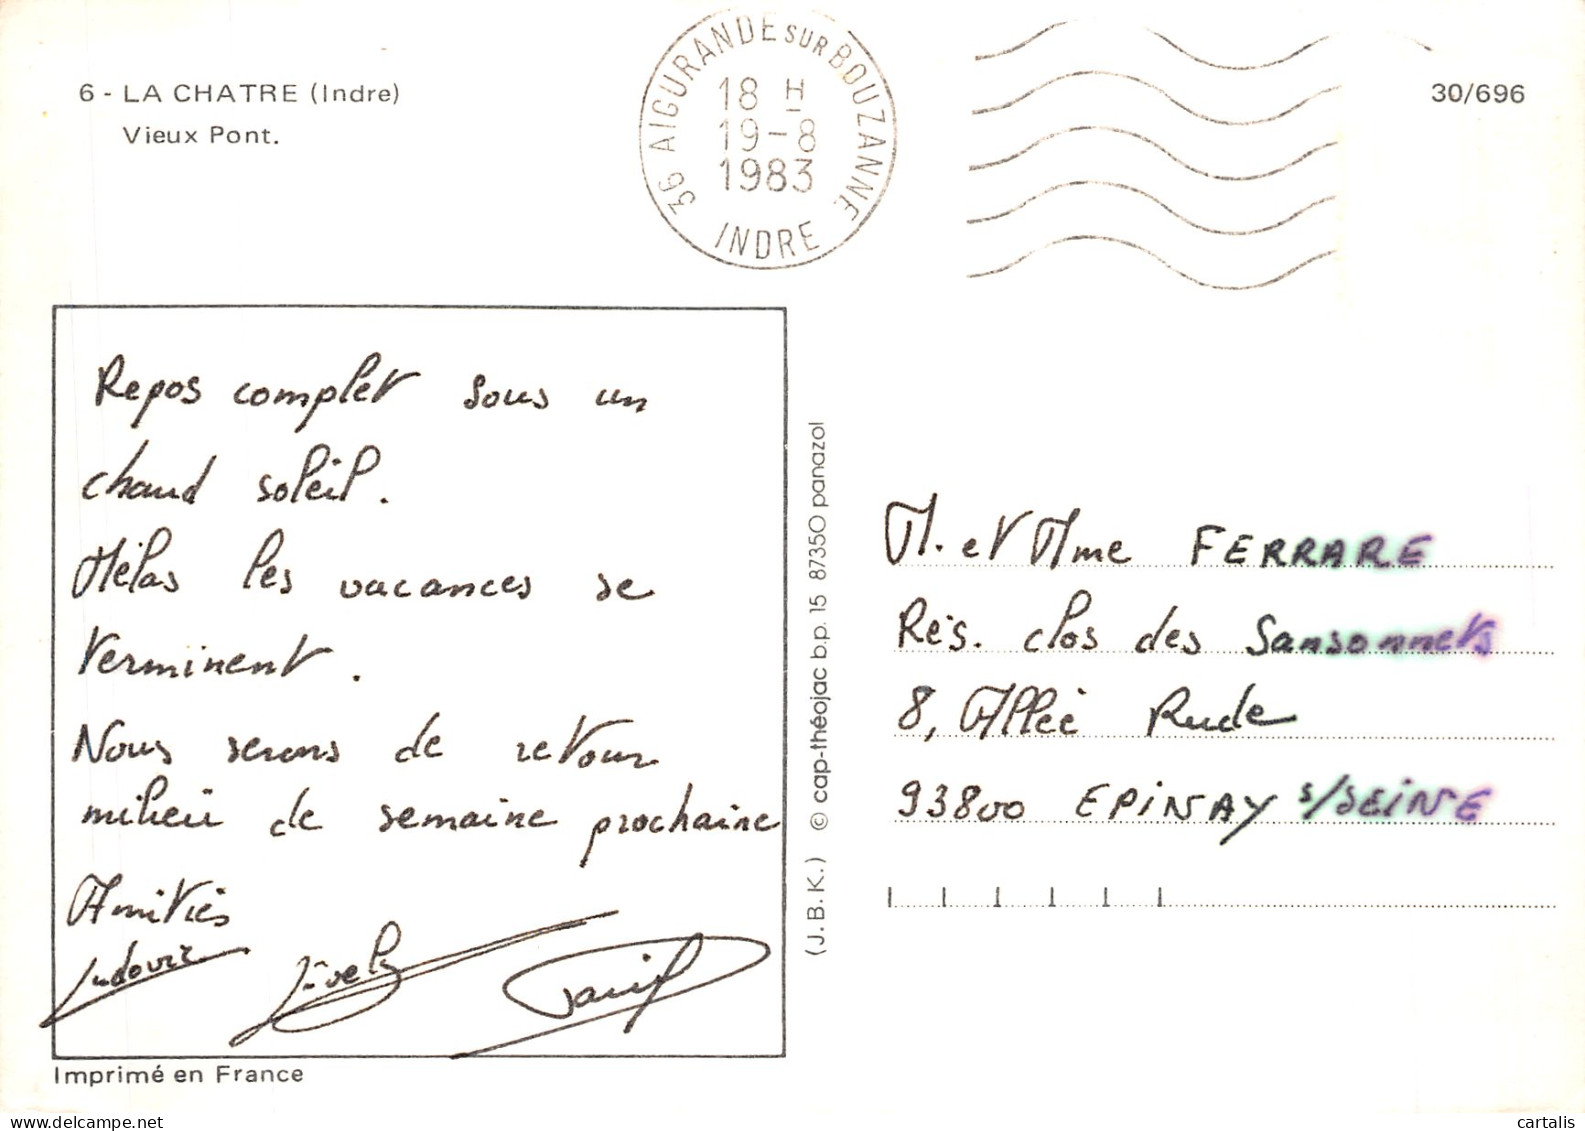 6 - LA CHATRE (Indre)
Vieux Pont.
36 AIGURANDE SUR BOUZANNE
18 H
19-8
1983
INDRE
30/696
Repos complet sous un
chaud soleil.
Hélas les vacances se
terminent.
Nous serons de retour
milieu de semaine prochaine
Amitiés
Ludovic
(J.B.K.) © cap-théojac b.p. 15 87350 panazol
M. et Mme FERRARE
Rés. clos des Sansonnets
8, Allée Rude
93800 EPINAY s/SEINE
Imprimé en France
cartalis